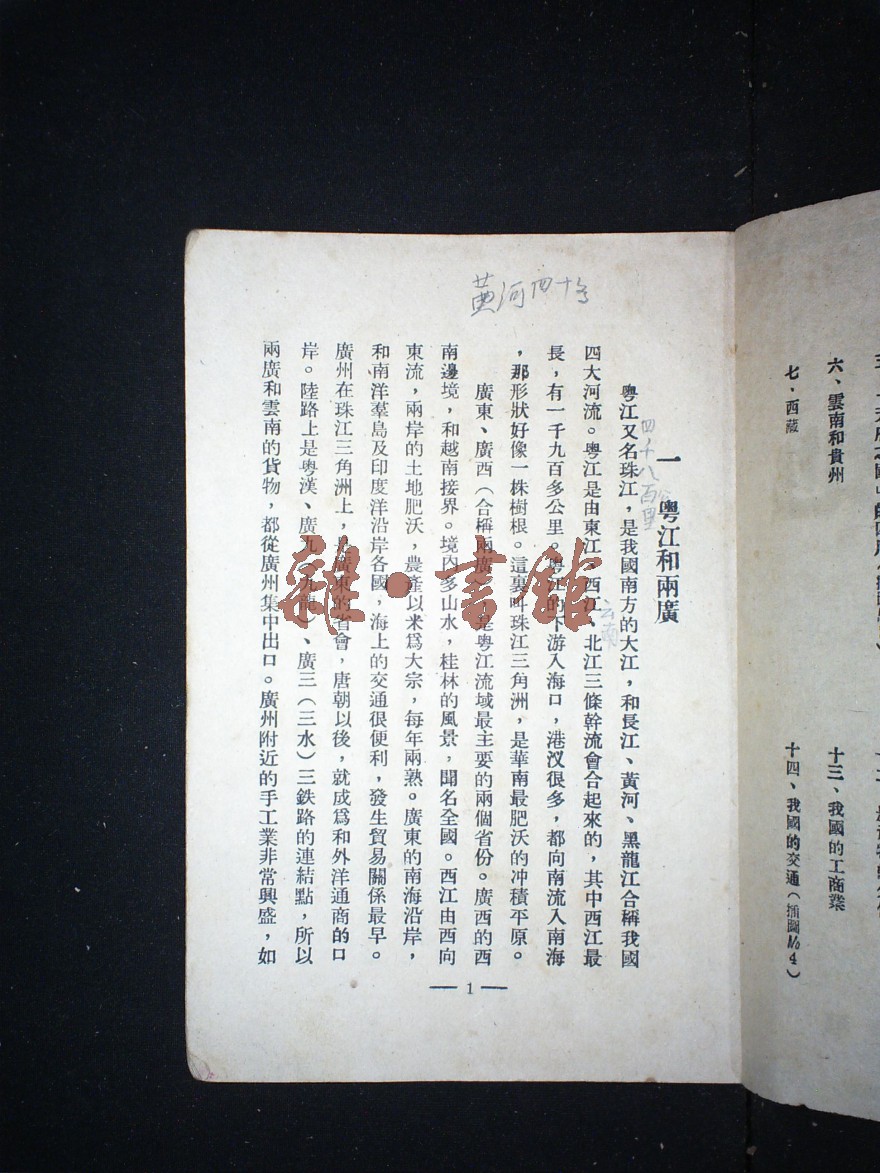 六、雲南和貴州
七、西藏
十三、我國的工商業
十四、我國的交通（插圖№4）
黄河四十
四千八百里
云南
一　粵江和兩廣
粵江又名珠江，是我國南方的大江，和長江、黃河、黑龍江合稱我國
四大河流。粵江是由東江、西江、北江三條幹流會合起來的，其中西江最
長，有一千九百多公里。粵江的下游入海口，港汊很多，都向南流入南海
，那形狀好像一株樹根。這裏叫珠江三角洲，是華南最肥沃的冲積平原。
廣東、廣西（合稱兩廣），是粵江流域最主要的兩個省份。廣西的西
南邊境，和越南接界。境內多山水，桂林的風景，聞名全國。西江由西向
東流，兩岸的土地肥沃，農產以米爲大宗，每年兩熟。廣東的南海沿岸，
和南洋羣島及印度洋沿岸各國，海上的交通很便利，發生貿易關係最早。
廣州在珠江三角洲上，是廣東的省會，唐朝以後，就成爲和外洋通商的口
岸。陸路上是粵漢、廣九（九龍）、廣三（三水）三鉄路的連結點，所以
兩廣和雲南的貨物，都從廣州集中出口。廣州附近的手工業非常興盛，如
— 1 —
雜·書館